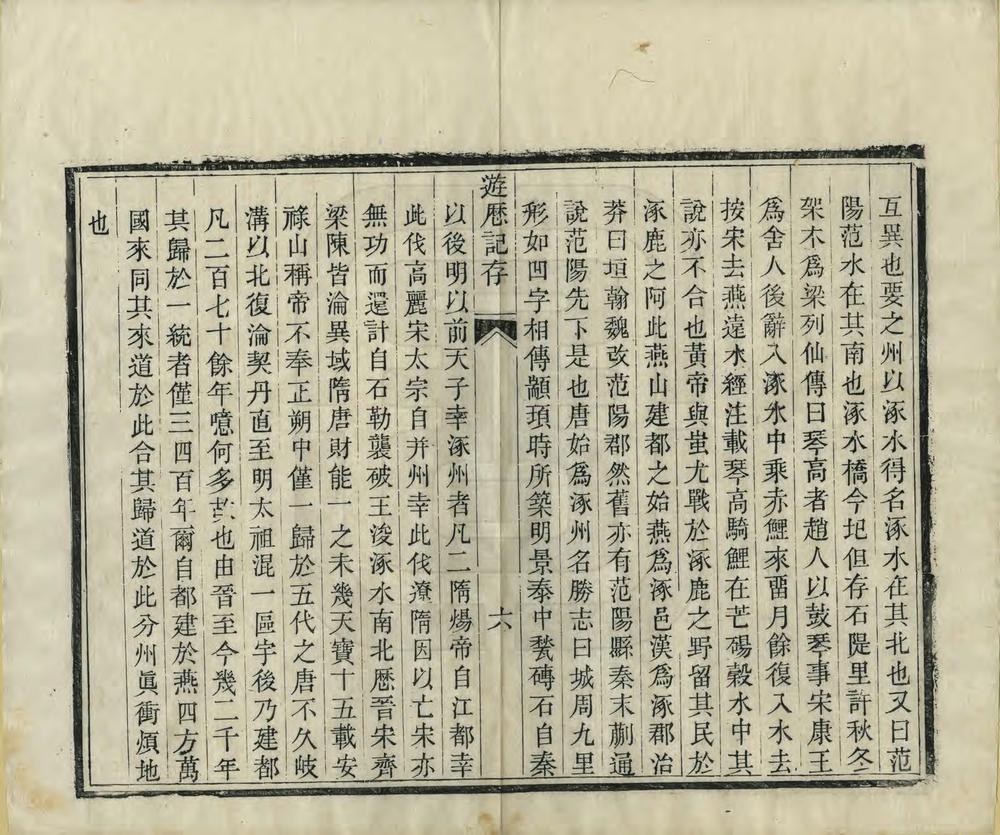 互異也要之州以涿水得名涿水在其北也又曰范
陽范水在其南也涿水橋今圯但存石隄里許秋冬
架木爲梁列仙傳曰琴高者趙人以鼓琴事宋康王
爲舍人後辭入涿水中乘赤鯉來畱月餘復入水去
按宋去燕遠水經注載琴高騎鯉在芒碭穀水中其
說亦不合也黃帝與蚩尤戰於涿鹿之野留其民於
涿鹿之阿此燕山建都之始燕爲涿邑漢爲涿郡治
莽曰垣翰魏改范陽郡然舊亦有范陽縣秦末蒯通
說范陽先下是也唐始爲涿州名勝志曰城周九里
形如凹字相傳顓頊時所築明景泰中甃磚石自秦
遊歷記存
六
以後明以前天子幸涿州者凡二隋煬帝自江都幸
此伐高麗宋太宗自并州幸此伐遼隋因以亡宋亦
無功而還計自石勒襲破王浚涿水南北歷晉宋齊
梁陳皆淪異域隋唐財能一之未幾天寶十五載安
祿山稱帝不奉正朔中僅一歸於五代之唐不久岐
溝以北復淪契丹直至明太祖混一區宇後乃建都
凡二百七十餘年噫何多故也由晉至今幾二千年
其歸於一統者僅三四百年爾自都建於燕四方萬
國來同其來道於此合其歸道於此分州眞衝煩地
也